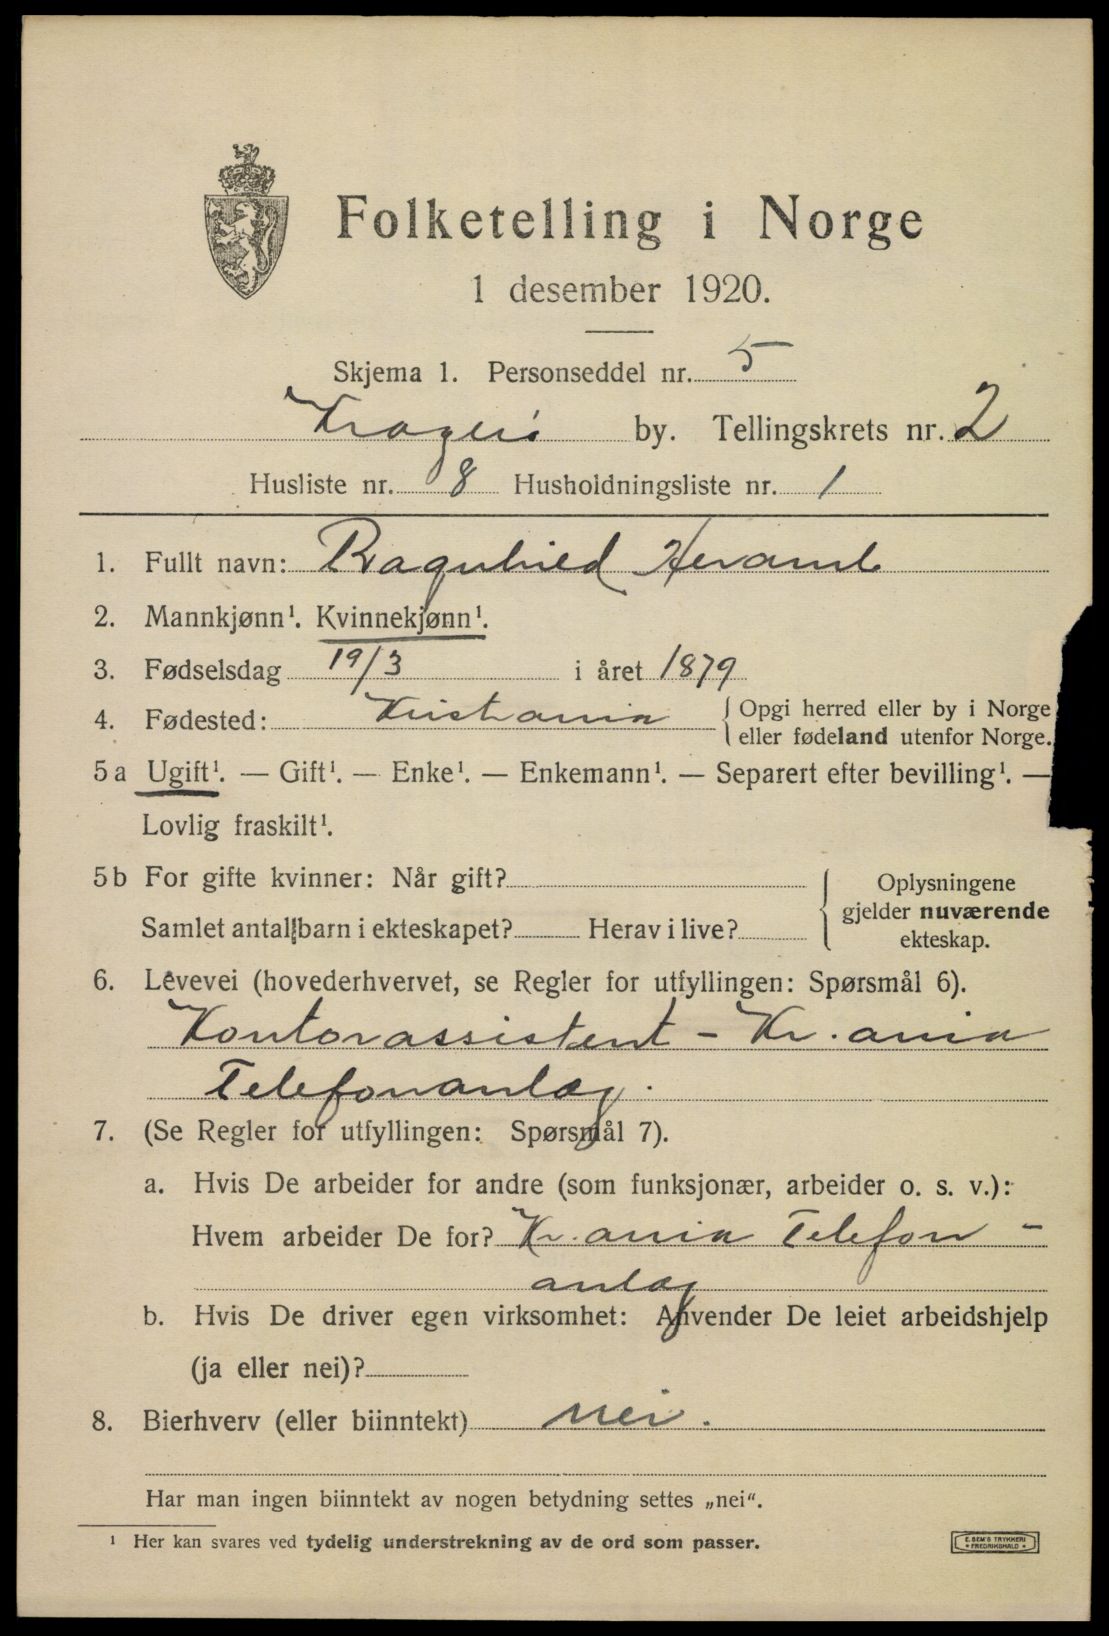 Folketelling i Norge
1 desember 1920.
Skjema 1. Personseddel nr. 5
Kragerö by. Tellingskrets nr. 2
Husliste nr. 8 Husholdningsliste nr. 1
1. Fullt navn: Ragnhild Heramb
2. Mannkjønn¹. Kvinnekjønn¹.
3. Fødselsdag 19/3 i året 1879
4. Fødested: Kristiania { Opgi herred eller by i Norge
eller fødeland utenfor Norge.
5 a Ugift¹. — Gift¹. — Enke¹. — Enkemann¹. — Separert efter bevilling¹. —
Lovlig fraskilt¹.
5 b For gifte kvinner: Når gift? { Oplysningene
gjelder nuværende
ekteskap.
Samlet antal barn i ekteskapet? Herav i live?
6. Levevei (hovederhvervet, se Regler for utfyllingen: Spørsmål 6).
Kontorassistent - Kr.ania
Telefonanlæg.
7. (Se Regler for utfyllingen: Spørsmål 7).
a. Hvis De arbeider for andre (som funksjonær, arbeider o. s. v.):
Hvem arbeider De for? Kr.ania Telefon-
anlæg
b. Hvis De driver egen virksomhet: Anvender De leiet arbeidshjelp
(ja eller nei)?
8. Bierhverv (eller biinntekt) nei.
Har man ingen biinntekt av nogen betydning settes „nei“.
¹ Her kan svares ved tydelig understrekning av de ord som passer.
E. SEM'S TRYKKERI
* FREDRIKSHALD *